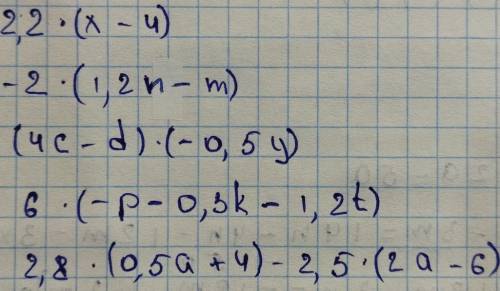 2,2 · (x - 4)
-2 · (1,2n - m)
(4c - d) · (-0,5y)
6 · (-p - 0,3k - 1,2t)
2,8 · (0,5a + 4) - 2,5 · (2a - 6)